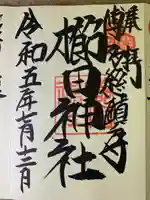 奉拝
博多総鎮守
櫛田神社
令和五年七月十三日